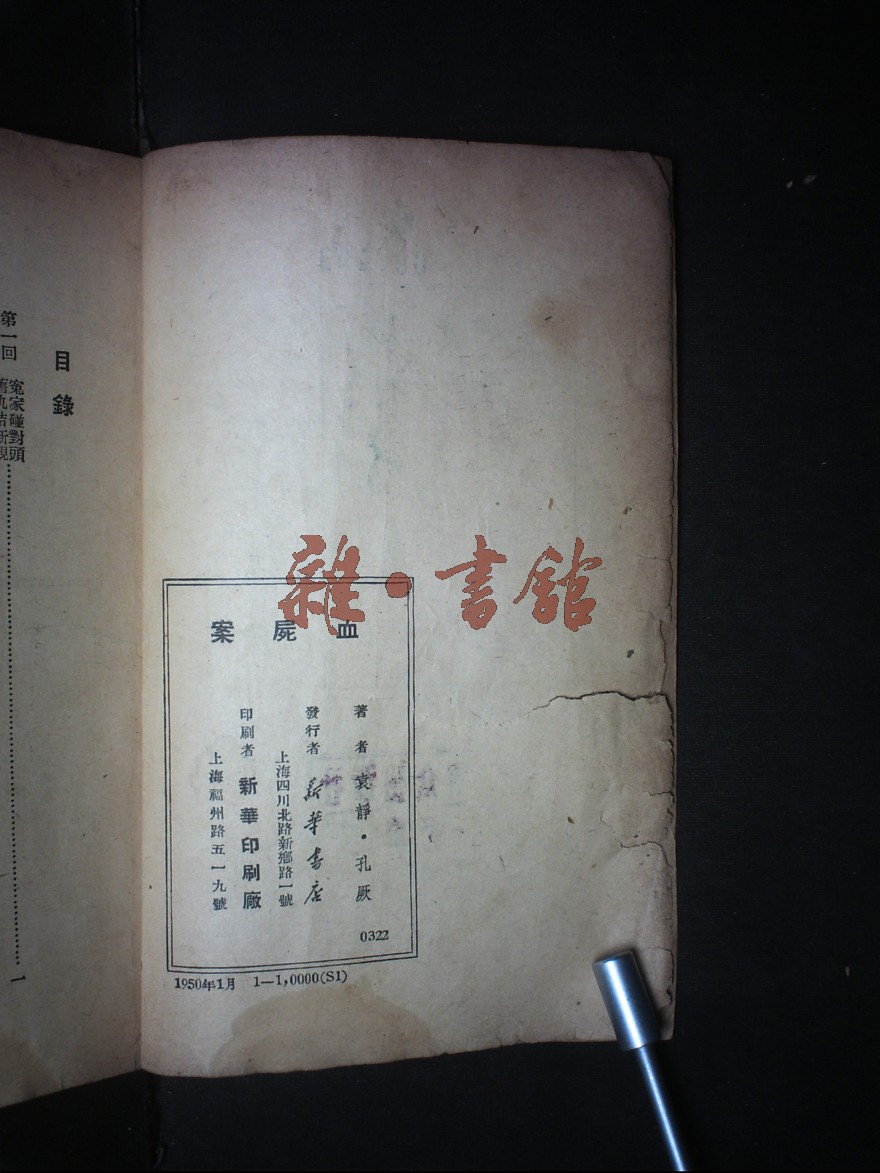 雜·書館
血屍案
著者 袁靜・孔厥
發行者 新華書店
上海四川北路新鄉路一號
印刷者 新華印刷廠
上海福州路五一九號
0322
1950年1月 1—1,0000(S1)
目錄
第一回 冤家碰對頭
1